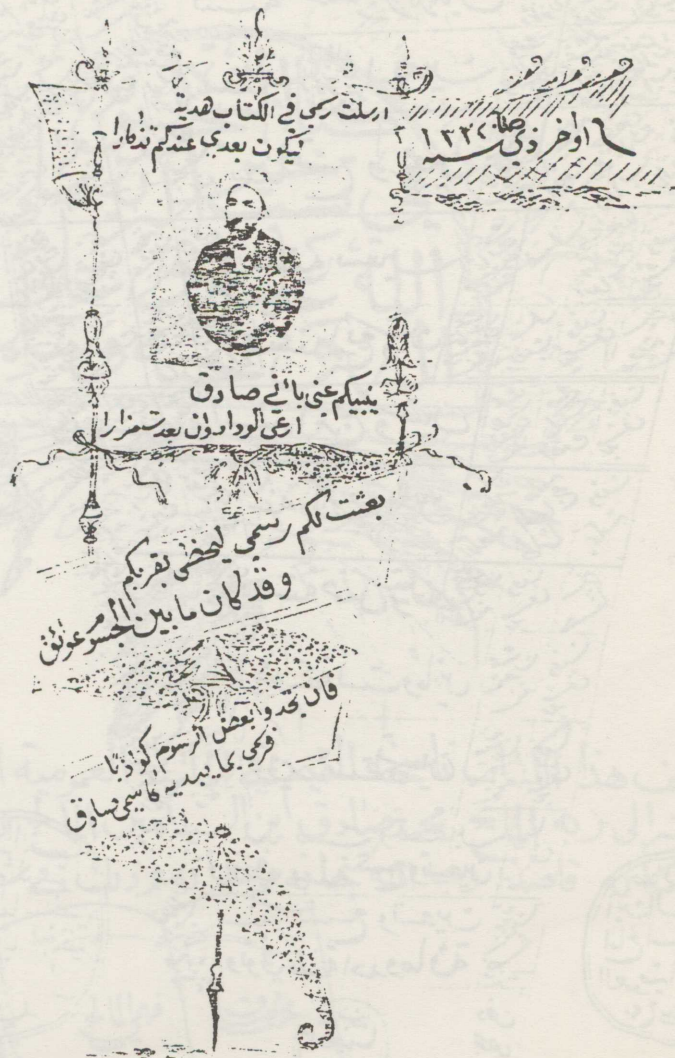 ارسلت رسمي في الكتاب هدية
ليكون بعدي عندكم تذكارا
اواخر ذي سنه ١٣٢٢
ينبيكم عني بأني صادق
ارعى الوداد وان بعدت مزارا
بعثت لكم رسمي ليحظى بقربكم
وقد كان ما بين الجسوم عوائق
فان تجدوا بعض الرسوم كواذبا
فرسمي بما يبديه كاسمي صادق